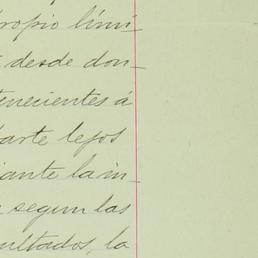 propio lími-
desde don-
tenecientes á
parte lejos
iante la in-
segun las
sultados, la